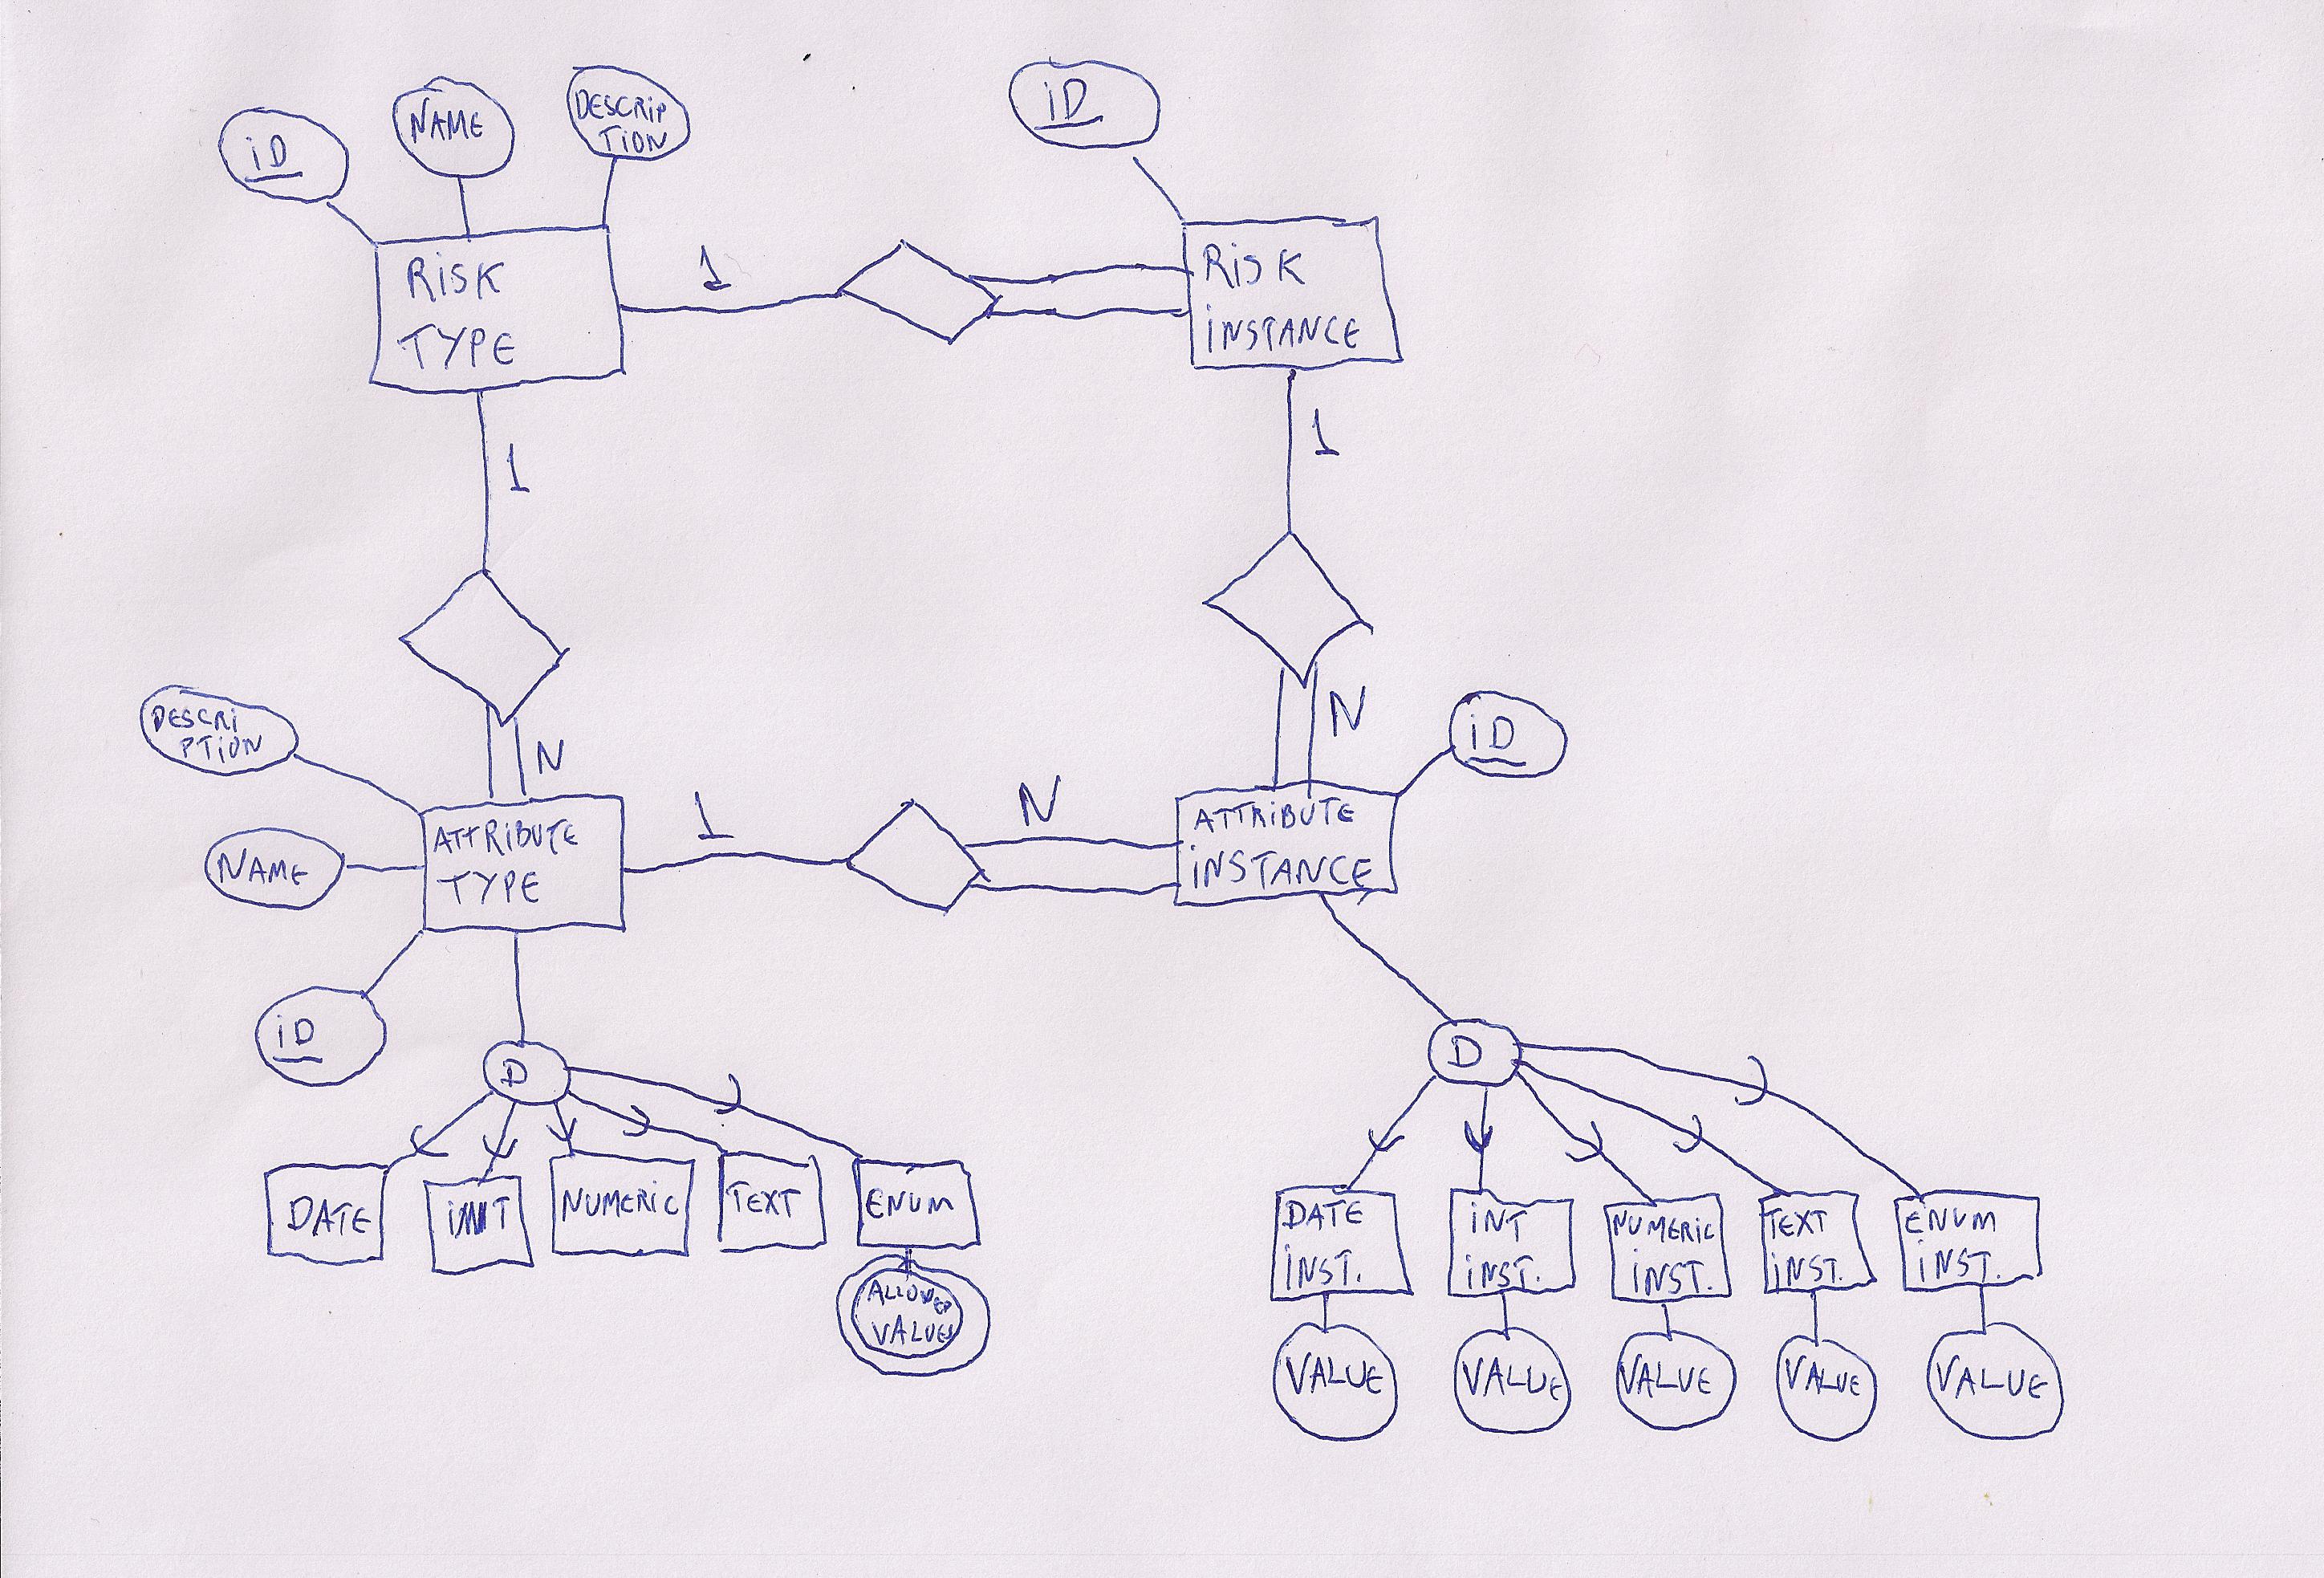 iD
NAME
DESCRIP
TION
iD
RiSK
TYPE
1
RiSK
iNSTANCE
1
1
N
N
DESCRI
PTiON
NAME
iD
ATTRiBUTE
TYPE
1
N
ATTRiBUTE
iNSTANCE
iD
D
D
DATE
iNT
NUMERiC
TEXT
ENUM
ALLOWED
VALUES
DATE
iNST.
iNT
iNST.
NUMERiC
iNST.
TEXT
iNST.
ENUM
iNST.
VALUE
VALUE
VALUE
VALUE
VALUE